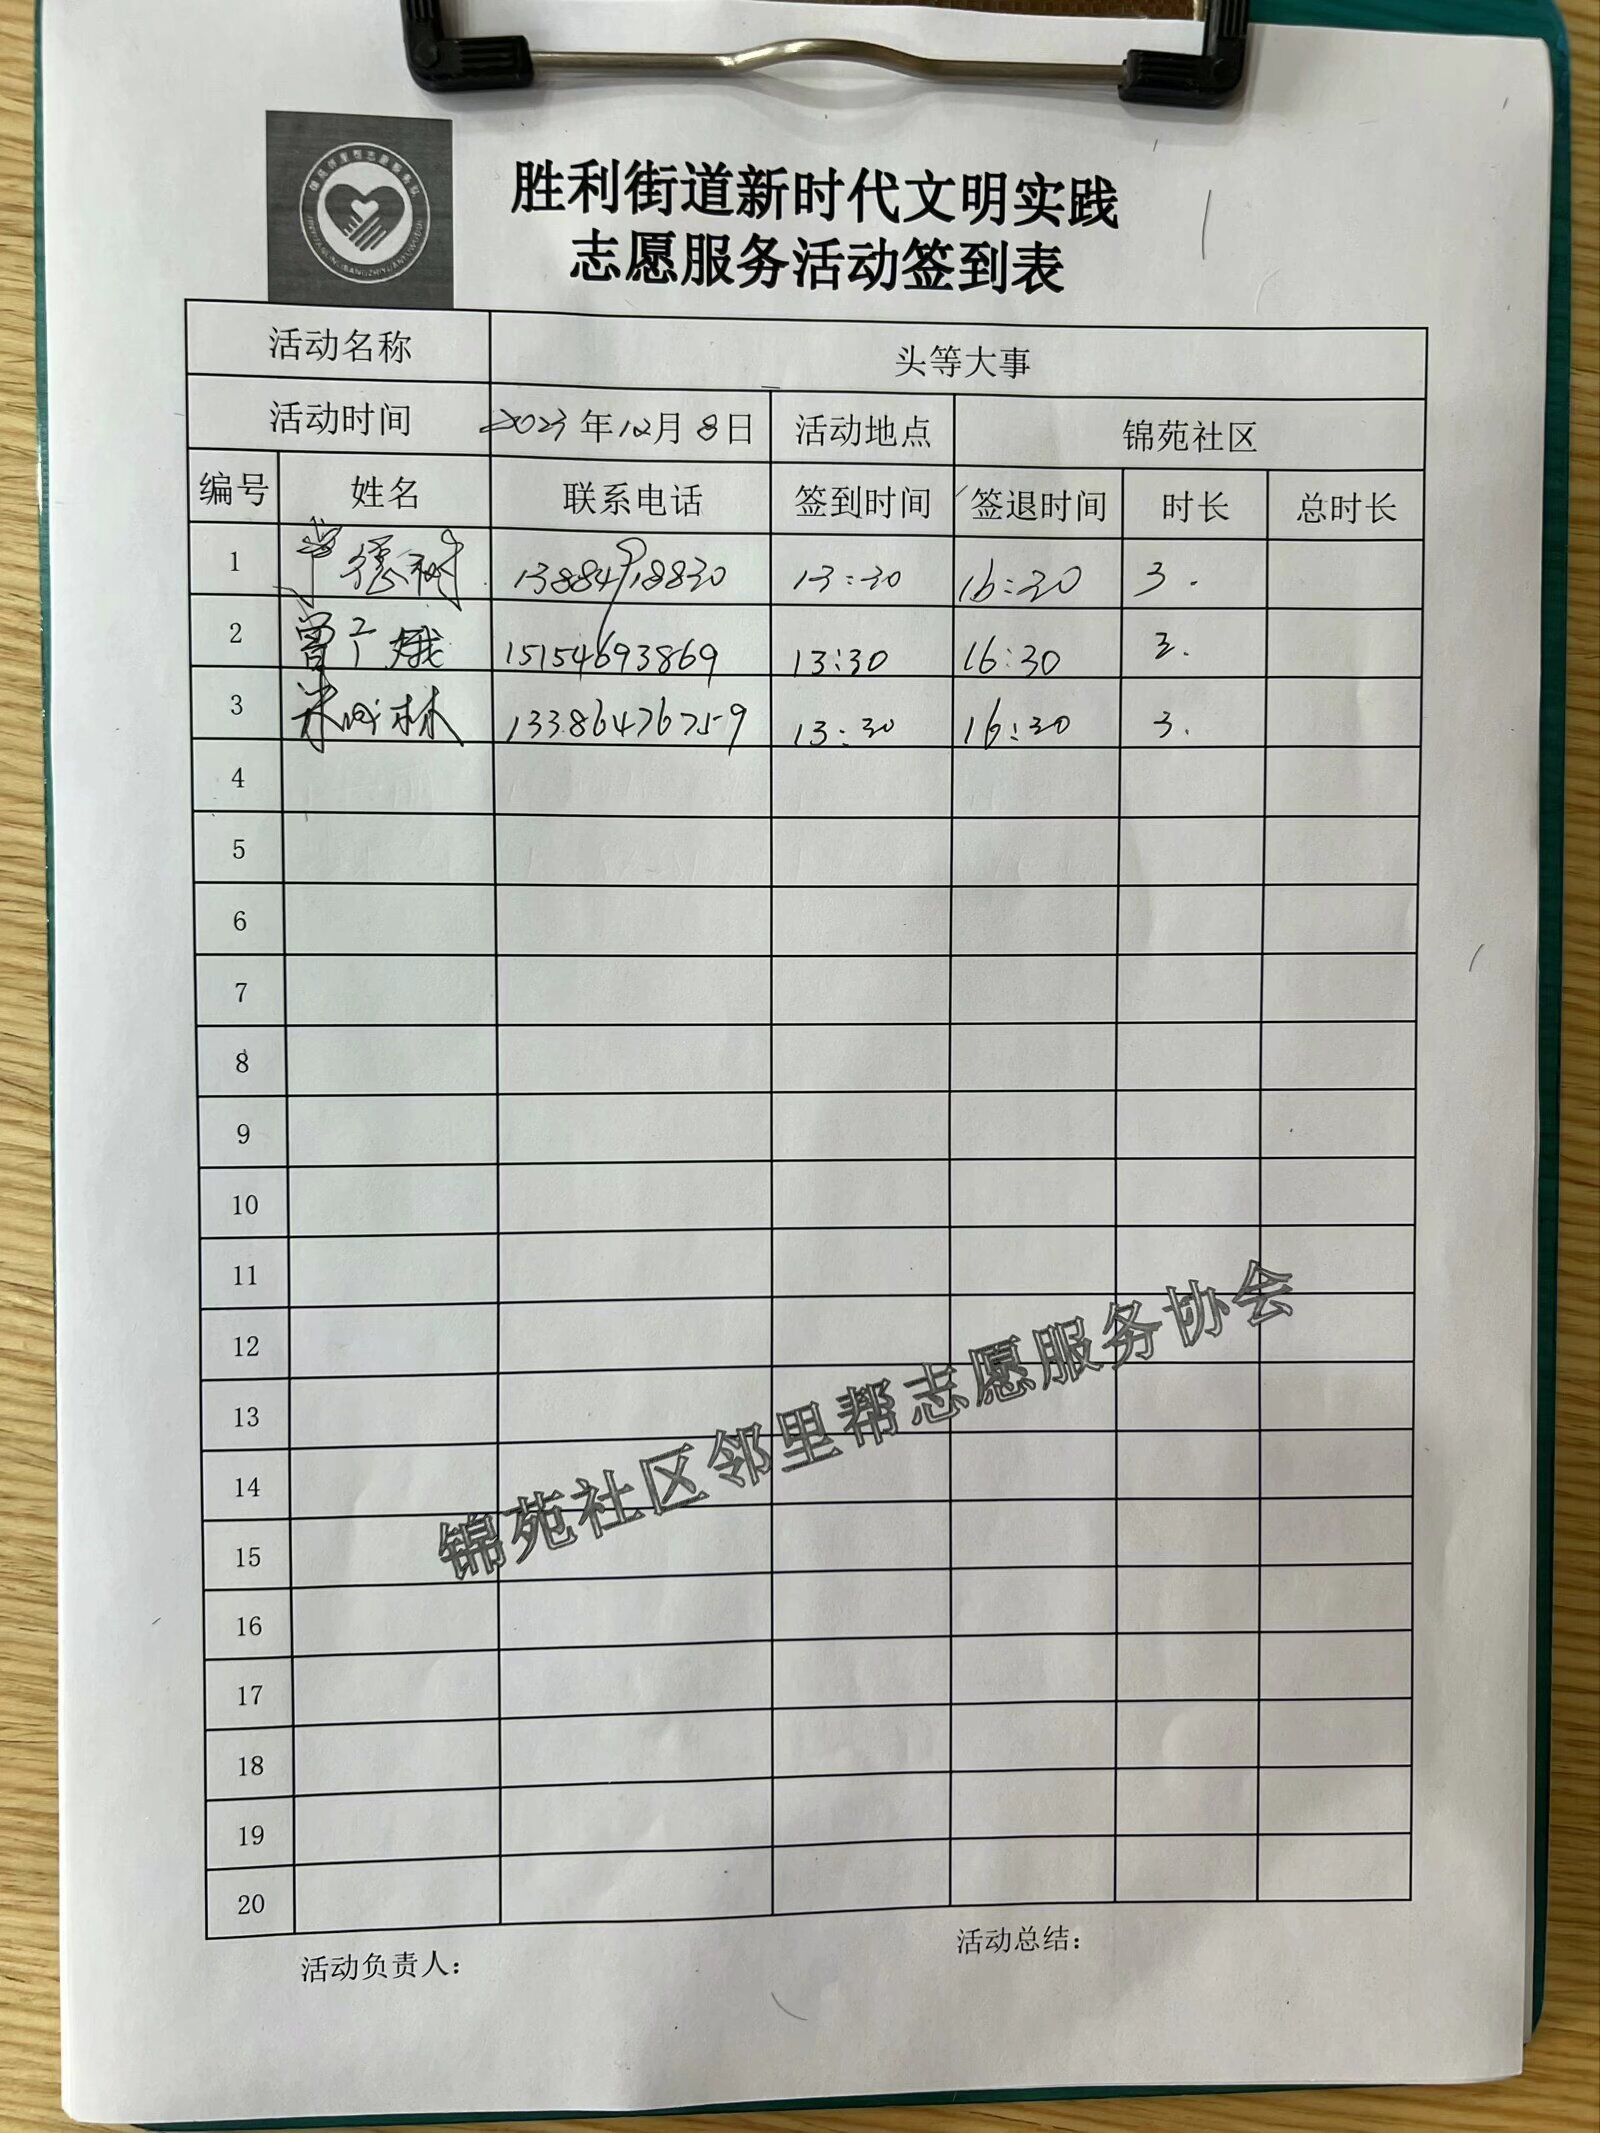 胜利街道新时代文明实践
志愿服务活动签到表
活动名称 头等大事
活动时间 2023年12月8日 活动地点 锦苑社区
编号 姓名 联系电话 签到时间 签退时间 时长 总时长
1 德树 13884918830 13:30 16:30 3.
2 曾广娥 15154693869 13:30 16:30 3.
3 林 13386476759 13:30 16:30 3.
4
5
6
7
8
9
10
11
12
13
14
15
16
17
18
19
20
锦苑社区邻里帮志愿服务协会
活动负责人： 活动总结：